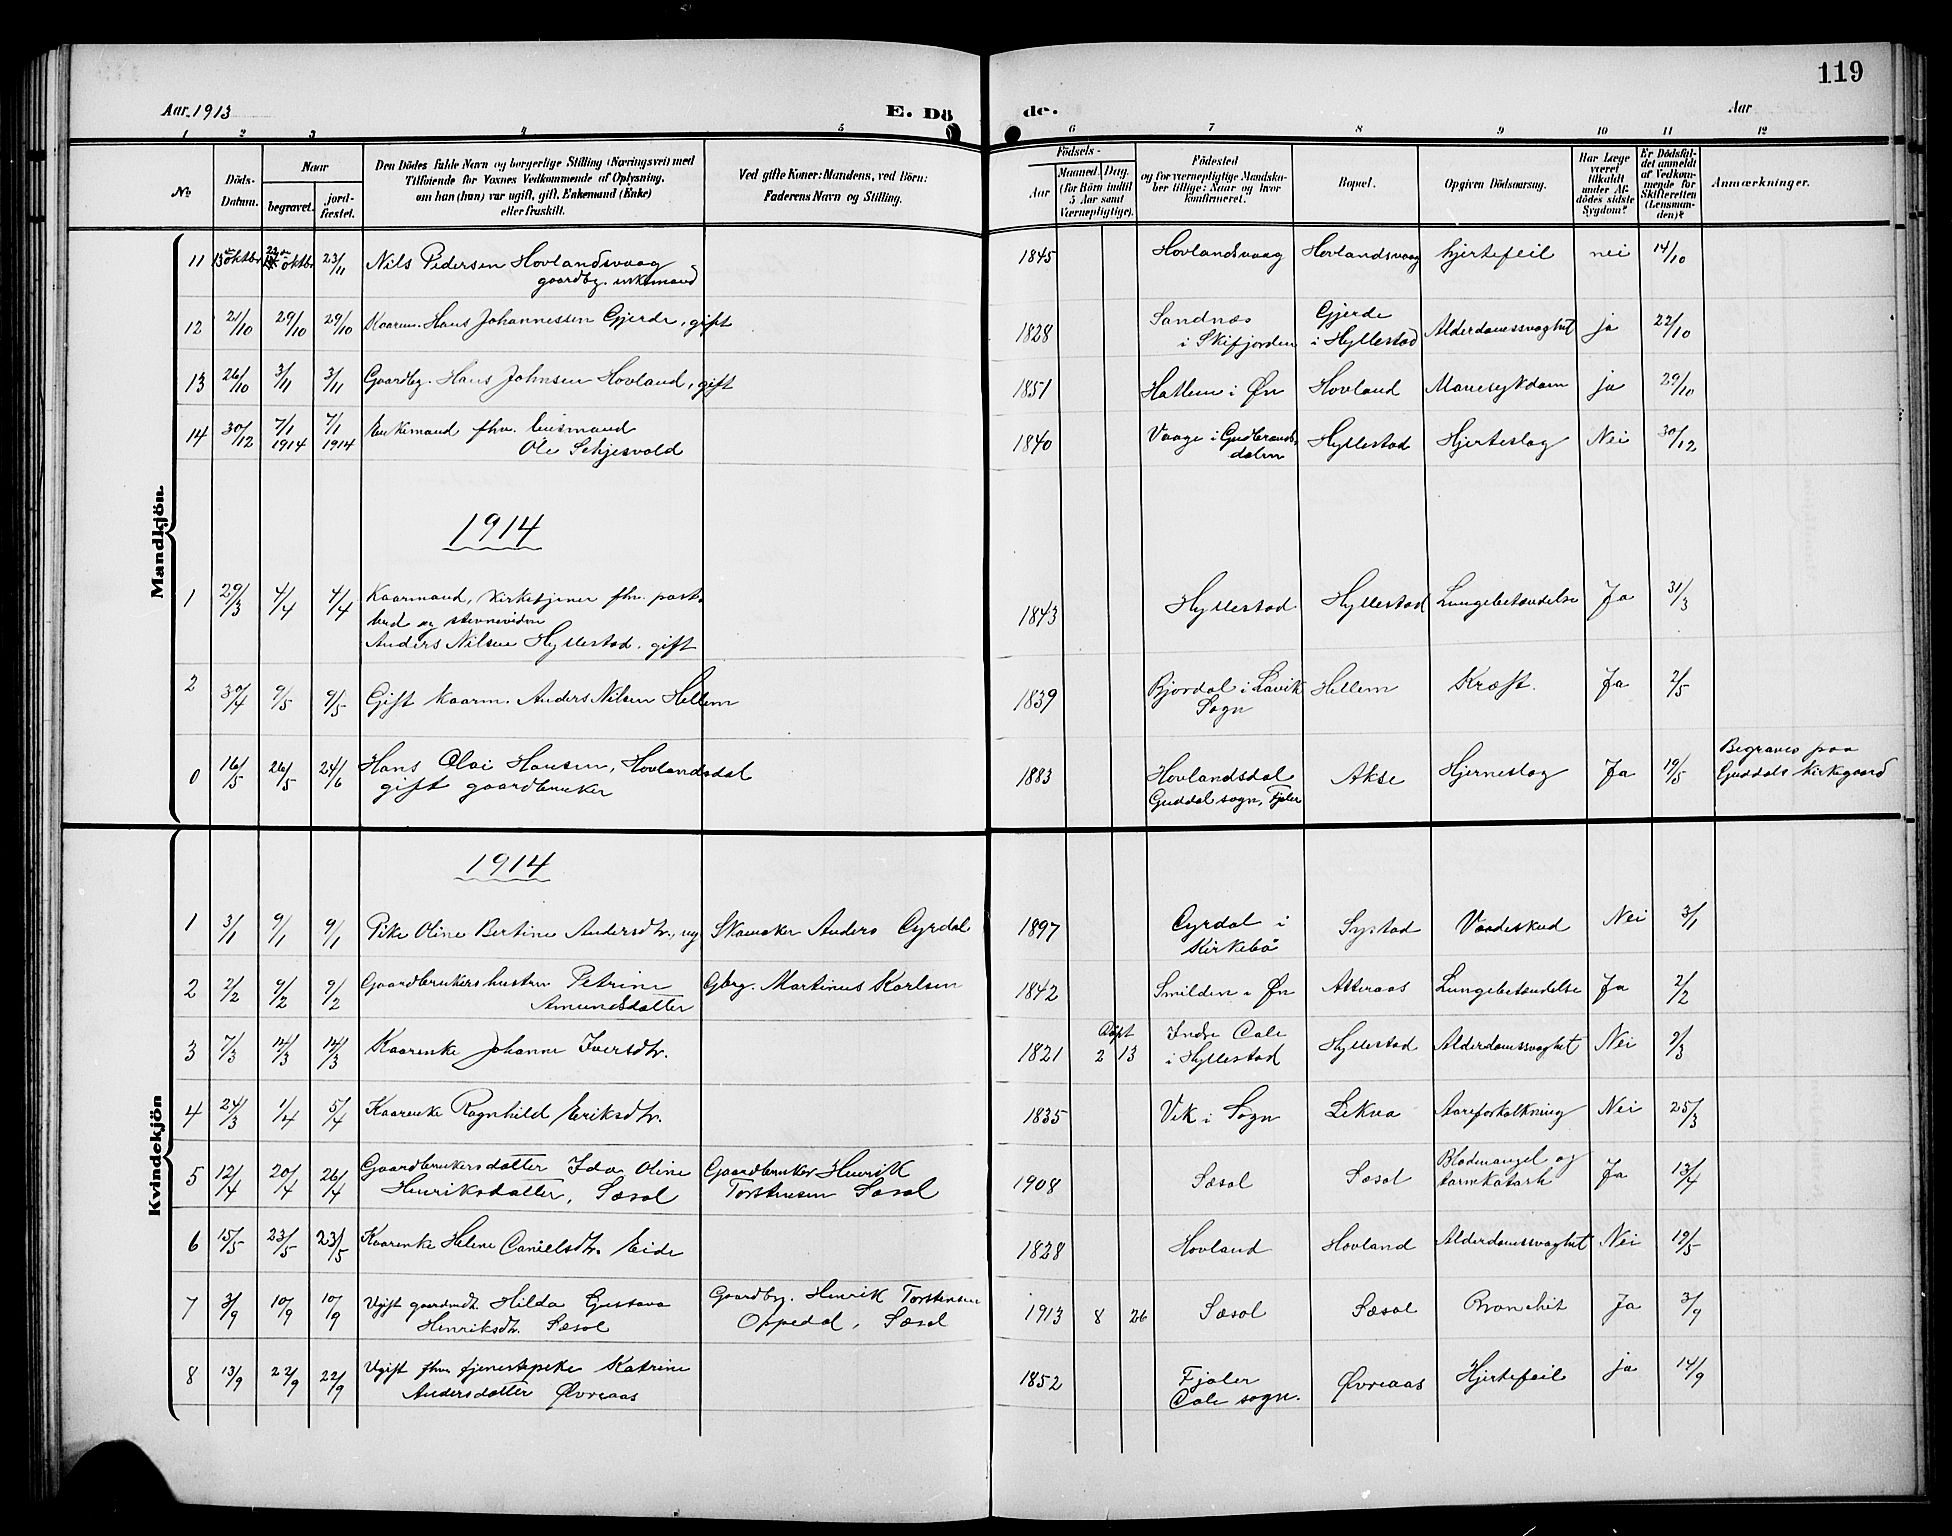 119
Aar 1913 E. Dö de. Aar
1 2 3 4 5 6 7 8 9 10 11 12
No
Döds-Datum.
Naar
begravet.
jord-fæstet.
Den Dödes fulde Navn og borgerlige Stilling (Næringsvei) med
Tilföiende for Voxnes Vedkommende af Oplysning,
om han (hun) var ugift, gift, Enkemand (Enke)
eller fraskilt.
Ved gifte Koner: Mandens, ved Börn:
Faderens Navn og Stilling.
Födsels-
Aar
Maaned. Dag.
(for Börn indtil
5 Aar samt
Værnepligtige).
Födested
og for værnepligtige Mandska-
ber tillige: Naar og hvor
konfirmeret.
Bopæl.
Opgiven Dödsaarsag.
Har Læge
været
tilkaldt
under Af-
dödes sidste
Sygdom?
Er Dödsfal-
det anmeldt
af Vedkom-
mende for
Skifteretten
(Lensman-
den)?
Anmærkninger.
Mandkjön.
11 13 oktbr oktbr 23/11 Nils Pedersen Hovlandsvaag 1845 Hovlandsvaag Hovlandsvaag hjertefeil nei 14/10
gaardbr. enkemand
12 21/10 29/10 29/10 Kaarm. Hans Johannessen Gjerde, gift 1828 Sandnes i Skifjorden Gjerde i Hyllestad Alderdomssvaghet ja 22/10
13 26/10 3/11 3/11 Gaardbr. Hans Johnsen Hovland, gift 1851 Hatlem i Øn Hovland Mavesykdom ja 29/10
14 30/12 7/1 1914 7/1 1914 Enkemand fhv. lensmand 1840 Vaage i Gudbrands- Hyllestad Hjerteslag Nei 30/12
Ole Schjesvold dalen
1914
1 29/3 4/4 4/4 Kaarmand, Kirketjener fhv. post- 1843 Hyllestad Hyllestad Lungebetændelse Ja 31/3
bud og stevnevidne
Anders Nilsen Hyllestad. gift
2 30/4 9/5 9/5 Gift kaarm. Anders Nilsen Hellem 1839 Bjordal i Lavik Hellem Kræft. Ja 2/5
Sogn
0 16/5 26/5 24/6 Hans Olai Hansen, Hovlandsdal 1883 Hovlandsdal Akse Hjerneslag Ja 19/5 Begraves paa
gift gaardbruker Guddal sogn, Fjaler Guddals kirkegaard
Kvindekjön
1914
1 3/1 9/1 9/1 Pike Oline Bertine Andersdtr., ug Skomaker Anders Dyrdal 1897 Dyrdal i Systad Vaadeskud Nei 3/1
Kirkebö
2 2/2 9/2 9/2 Gaardbrukers hustru Petrine Gbrg. Martinus Karlsen 1842 Smilden i Øn Atteraas Lungebetændelse Ja 2/2
Amundsdatter
3 7/3 14/3 14/3 Kaarenke Johanne Iversdtr. 1821 Döpt 2 13 Indre Dale Hyllestad Alderdomssvaghet Nei 9/3
i Hyllestad
4 24/3 1/4 5/4 Kaarenke Ragnhild Eriksdtr. 1835 Vik i Sogn Leknа Aareforkalkning Nei 25/3
5 12/4 20/4 26/4 Gaardbrukersdatter Ida Oline Gaardbruker Henrik 1908 Sæsol Sæsol Blodmangel og Ja 13/4
Henriksdatter, Sæsol Torstensen Sæsol tarmkatarh
6 15/5 23/5 23/5 Kaarenke Helene Danielsdtr. Eide 1828 Hovland Hovland Alderdomssvaghet Nei 19/5
7 3/9 10/9 10/9 Ugift gaardmdt. Hilda Gustava Gaardbr. Henrik Torstensen 1913 8 26 Sæsol Sæsol Bronchit Ja 3/9
Henriksdtr. Sæsol Oppedal, Sæsol
8 13/9 22/9 22/9 Ugift fhv. tjenestepike Katrine 1852 Fjaler Øvreaas Hjertefeil ja 14/9
Andersdatter Øvreaas Dale sogn.